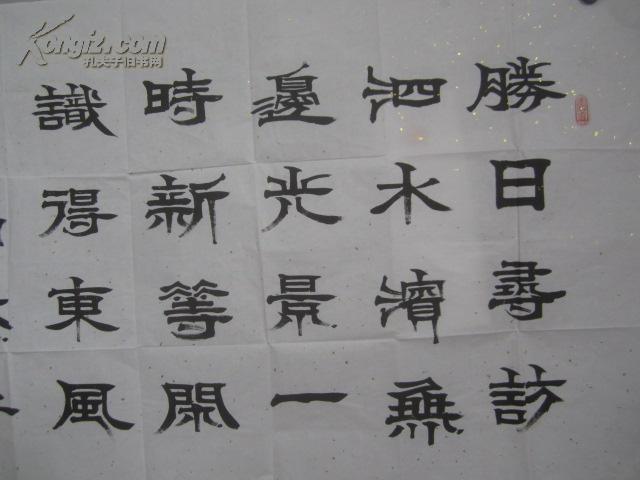 勝日尋訪
泗水濱無
邊光景一
時新等閑
識得東風
Kongfz.com
孔夫子旧书网